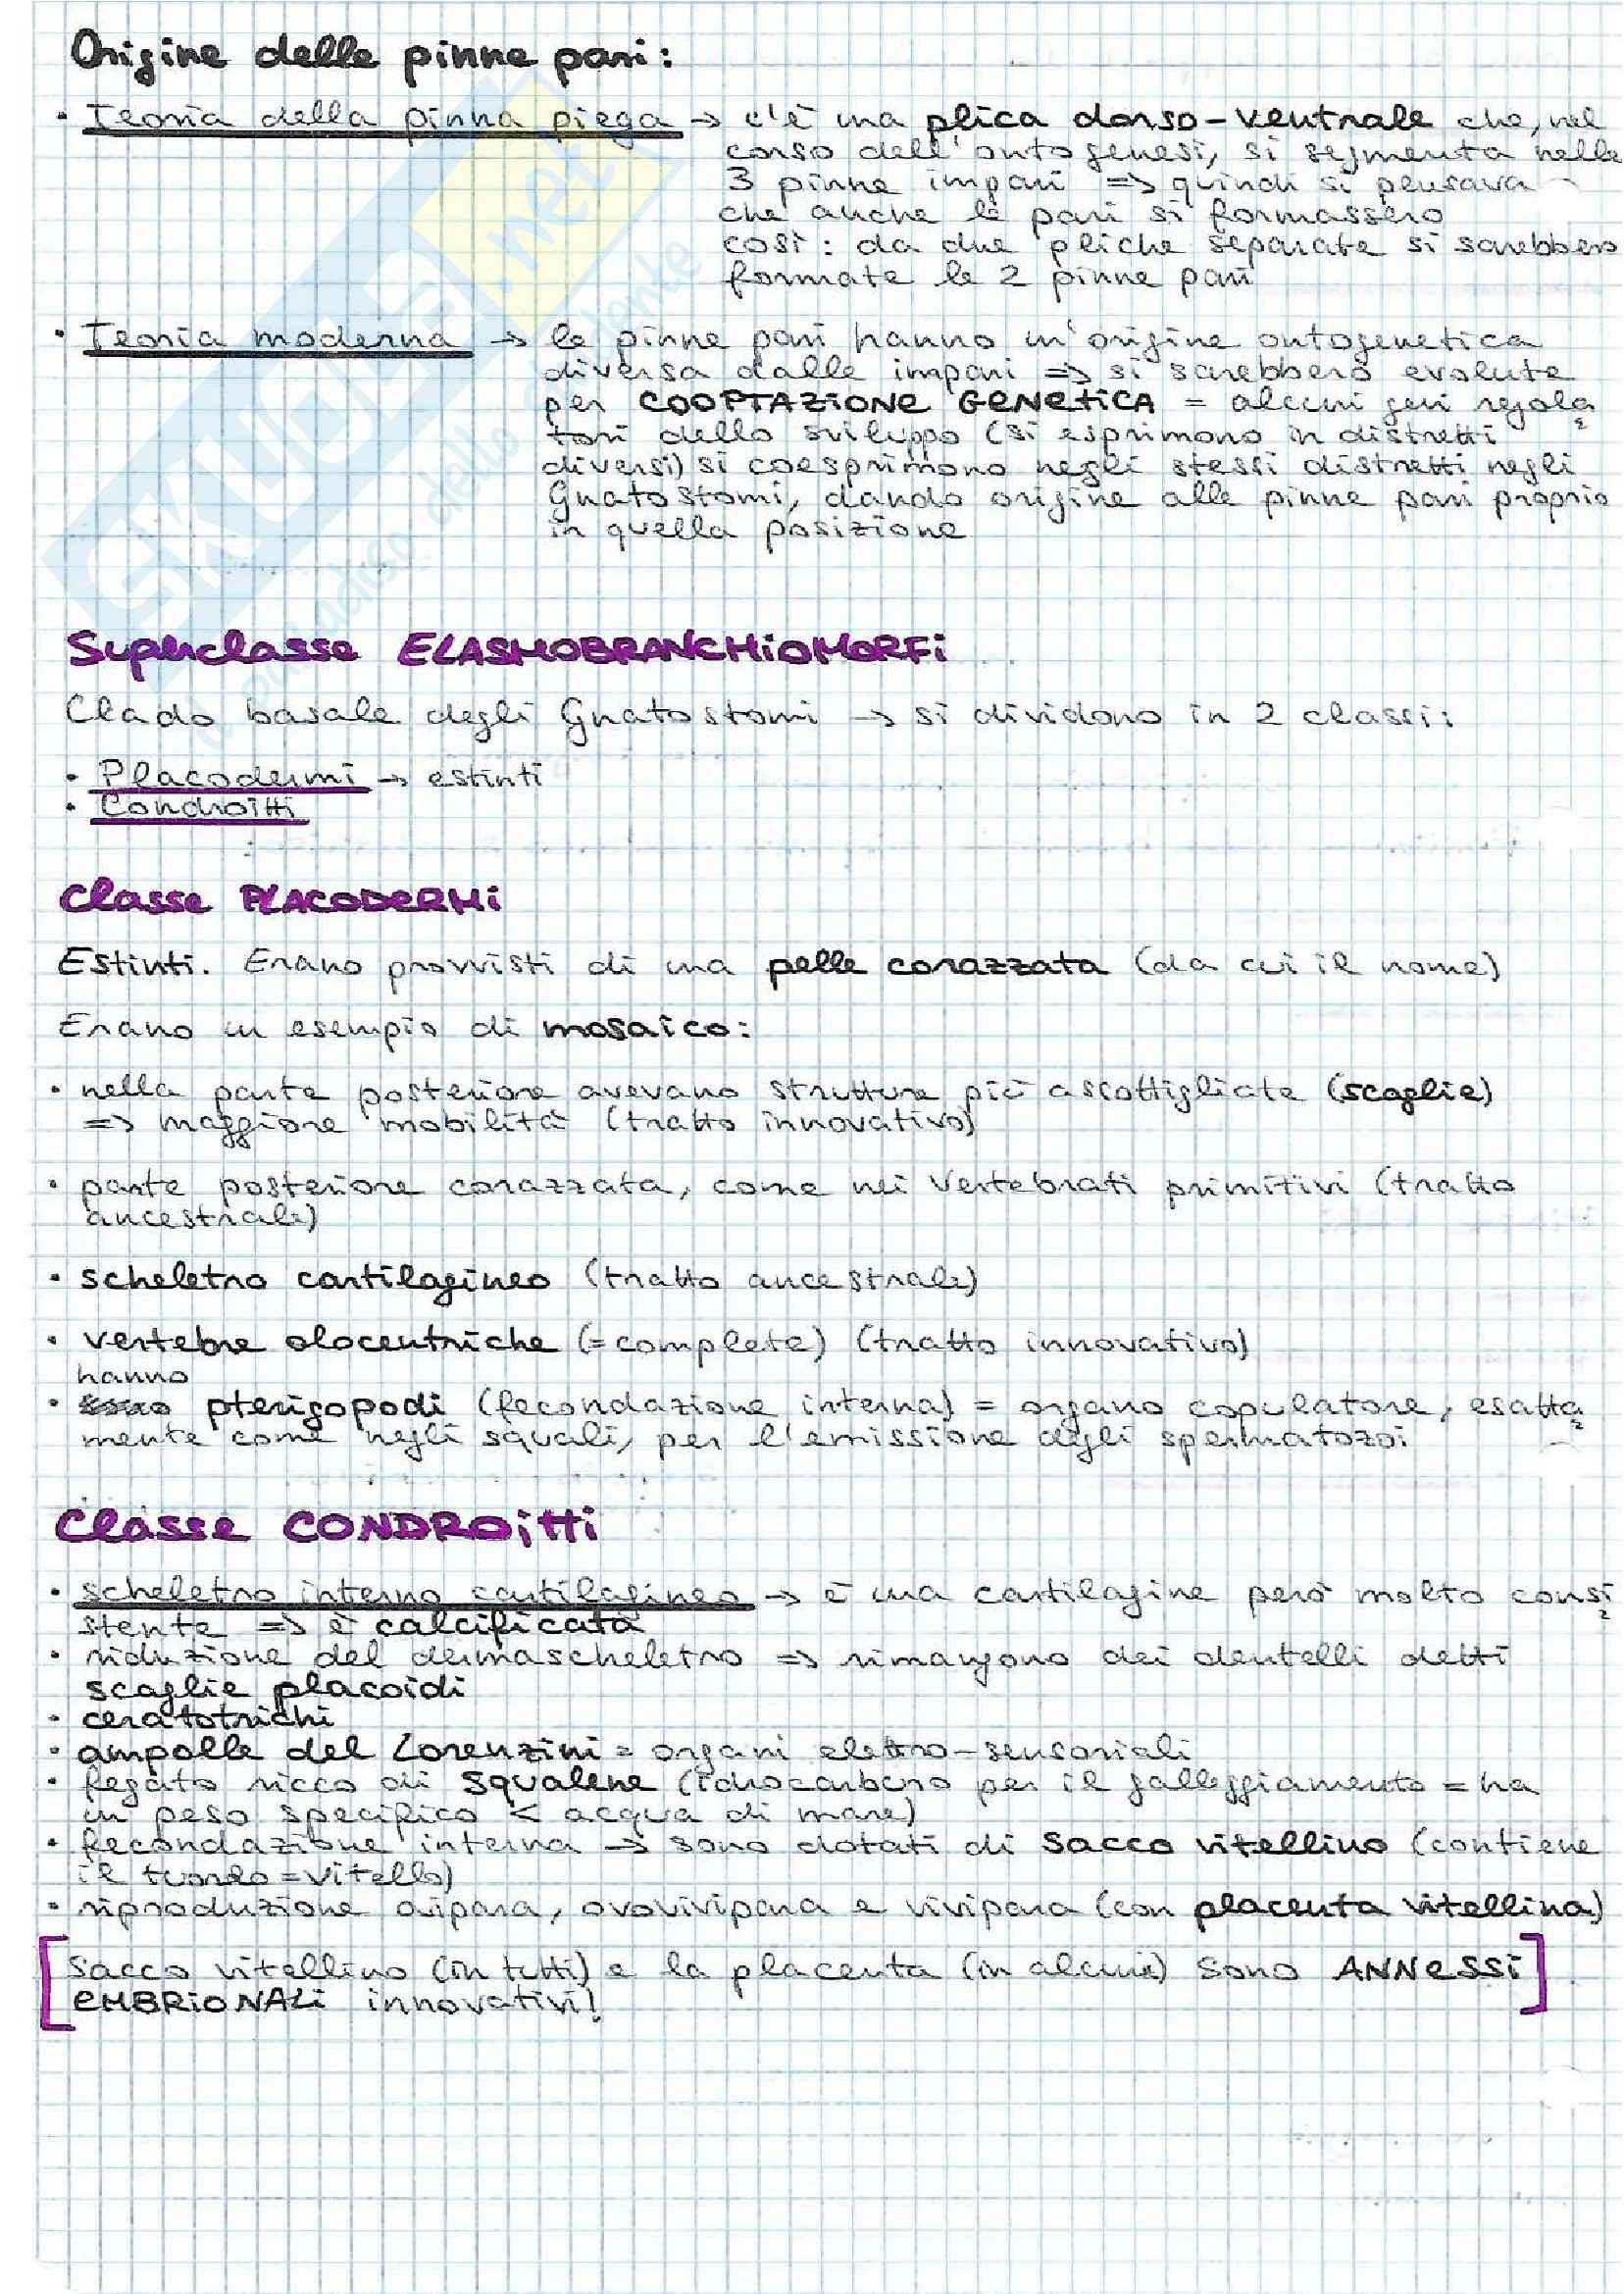 Origine delle pinne pari:
• Teoria della pinna piega → c'è una plica dorso-ventrale che, nel
corso dell'ontogenesi, si segmenta nelle
3 pinne impari => quindi si pensava
che anche le pari si formassero
così: da due pliche separate si sarebbero
formate le 2 pinne pari
• Teoria moderna → le pinne pari hanno un'origine ontogenetica
diversa dalle impari => si sarebbero evolute
per COOPTAZIONE GENETICA = alcuni geni regola
tori dello sviluppo (si esprimono in distretti
diversi) si coesprimono negli stessi distretti negli
Gnatostomi, dando origine alle pinne pari proprio
in quella posizione
Superclasse ELASMOBRANCHIOMORFI
Clado basale degli Gnatostomi → si dividono in 2 classi:
• Placodermi → estinti
• Condroitti
Classe PLACODERMI
Estinti. Erano provvisti di una pelle corazzata (da cui il nome)
Erano un esempio di mosaico:
• nella parte posteriore avevano strutture più assottigliate (scaglie)
=> maggiore mobilità (tratto innovativo)
• parte posteriore corazzata, come nei Vertebrati primitivi (tratto
ancestrale)
• scheletro cartilagineo (tratto ancestrale)
• vertebre olocentriche (= complete) (tratto innovativo)
hanno
• pterigopodi (fecondazione interna) = organo copulatore, esatta
mente come negli squali, per l'emissione degli spermatozoi
Classe CONDROITTI
• scheletro interno cartilagineo → è una cartilagine però molto consi
stente => è calcificata
• riduzione del dermascheletro => rimangono dei dentelli detti
scaglie placoidi
• ceratotrichi
• ampolle del Lorenzini = organi elettro-sensoriali
• fegato ricco di squalene (idrocarburo per il galleggiamento = ha
un peso specifico < acqua di mare)
• fecondazione interna → sono dotati di sacco vitellino (contiene
il tuorlo = vitello)
• riproduzione ovipara, ovovivipara e vivipara (con placenta vitellina)
[Sacco vitellino (in tutti) e la placenta (in alcuni) sono ANNESSI
EMBRIONALI innovativi!]
SKUOLA.net